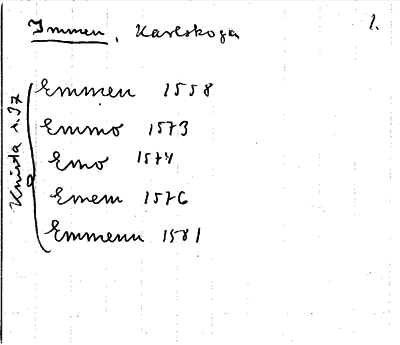 Immen, Karlskoga 1.
Emmen 1558
Emmo 1573
Emo 1574
Emem 1576
Emmenn 1581
Knista s. 37